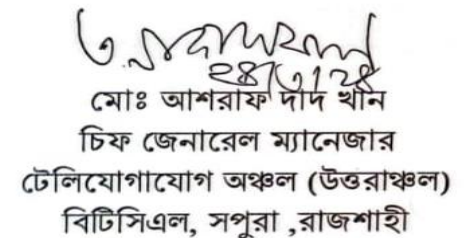 মোঃ আশরাফ দাদ খান
চিফ জেনারেল ম্যানেজার
টেলিযোগাযোগ অঞ্চল (উত্তরাঞ্চল)
বিটিসিএল, সপুরা ,রাজশাহী